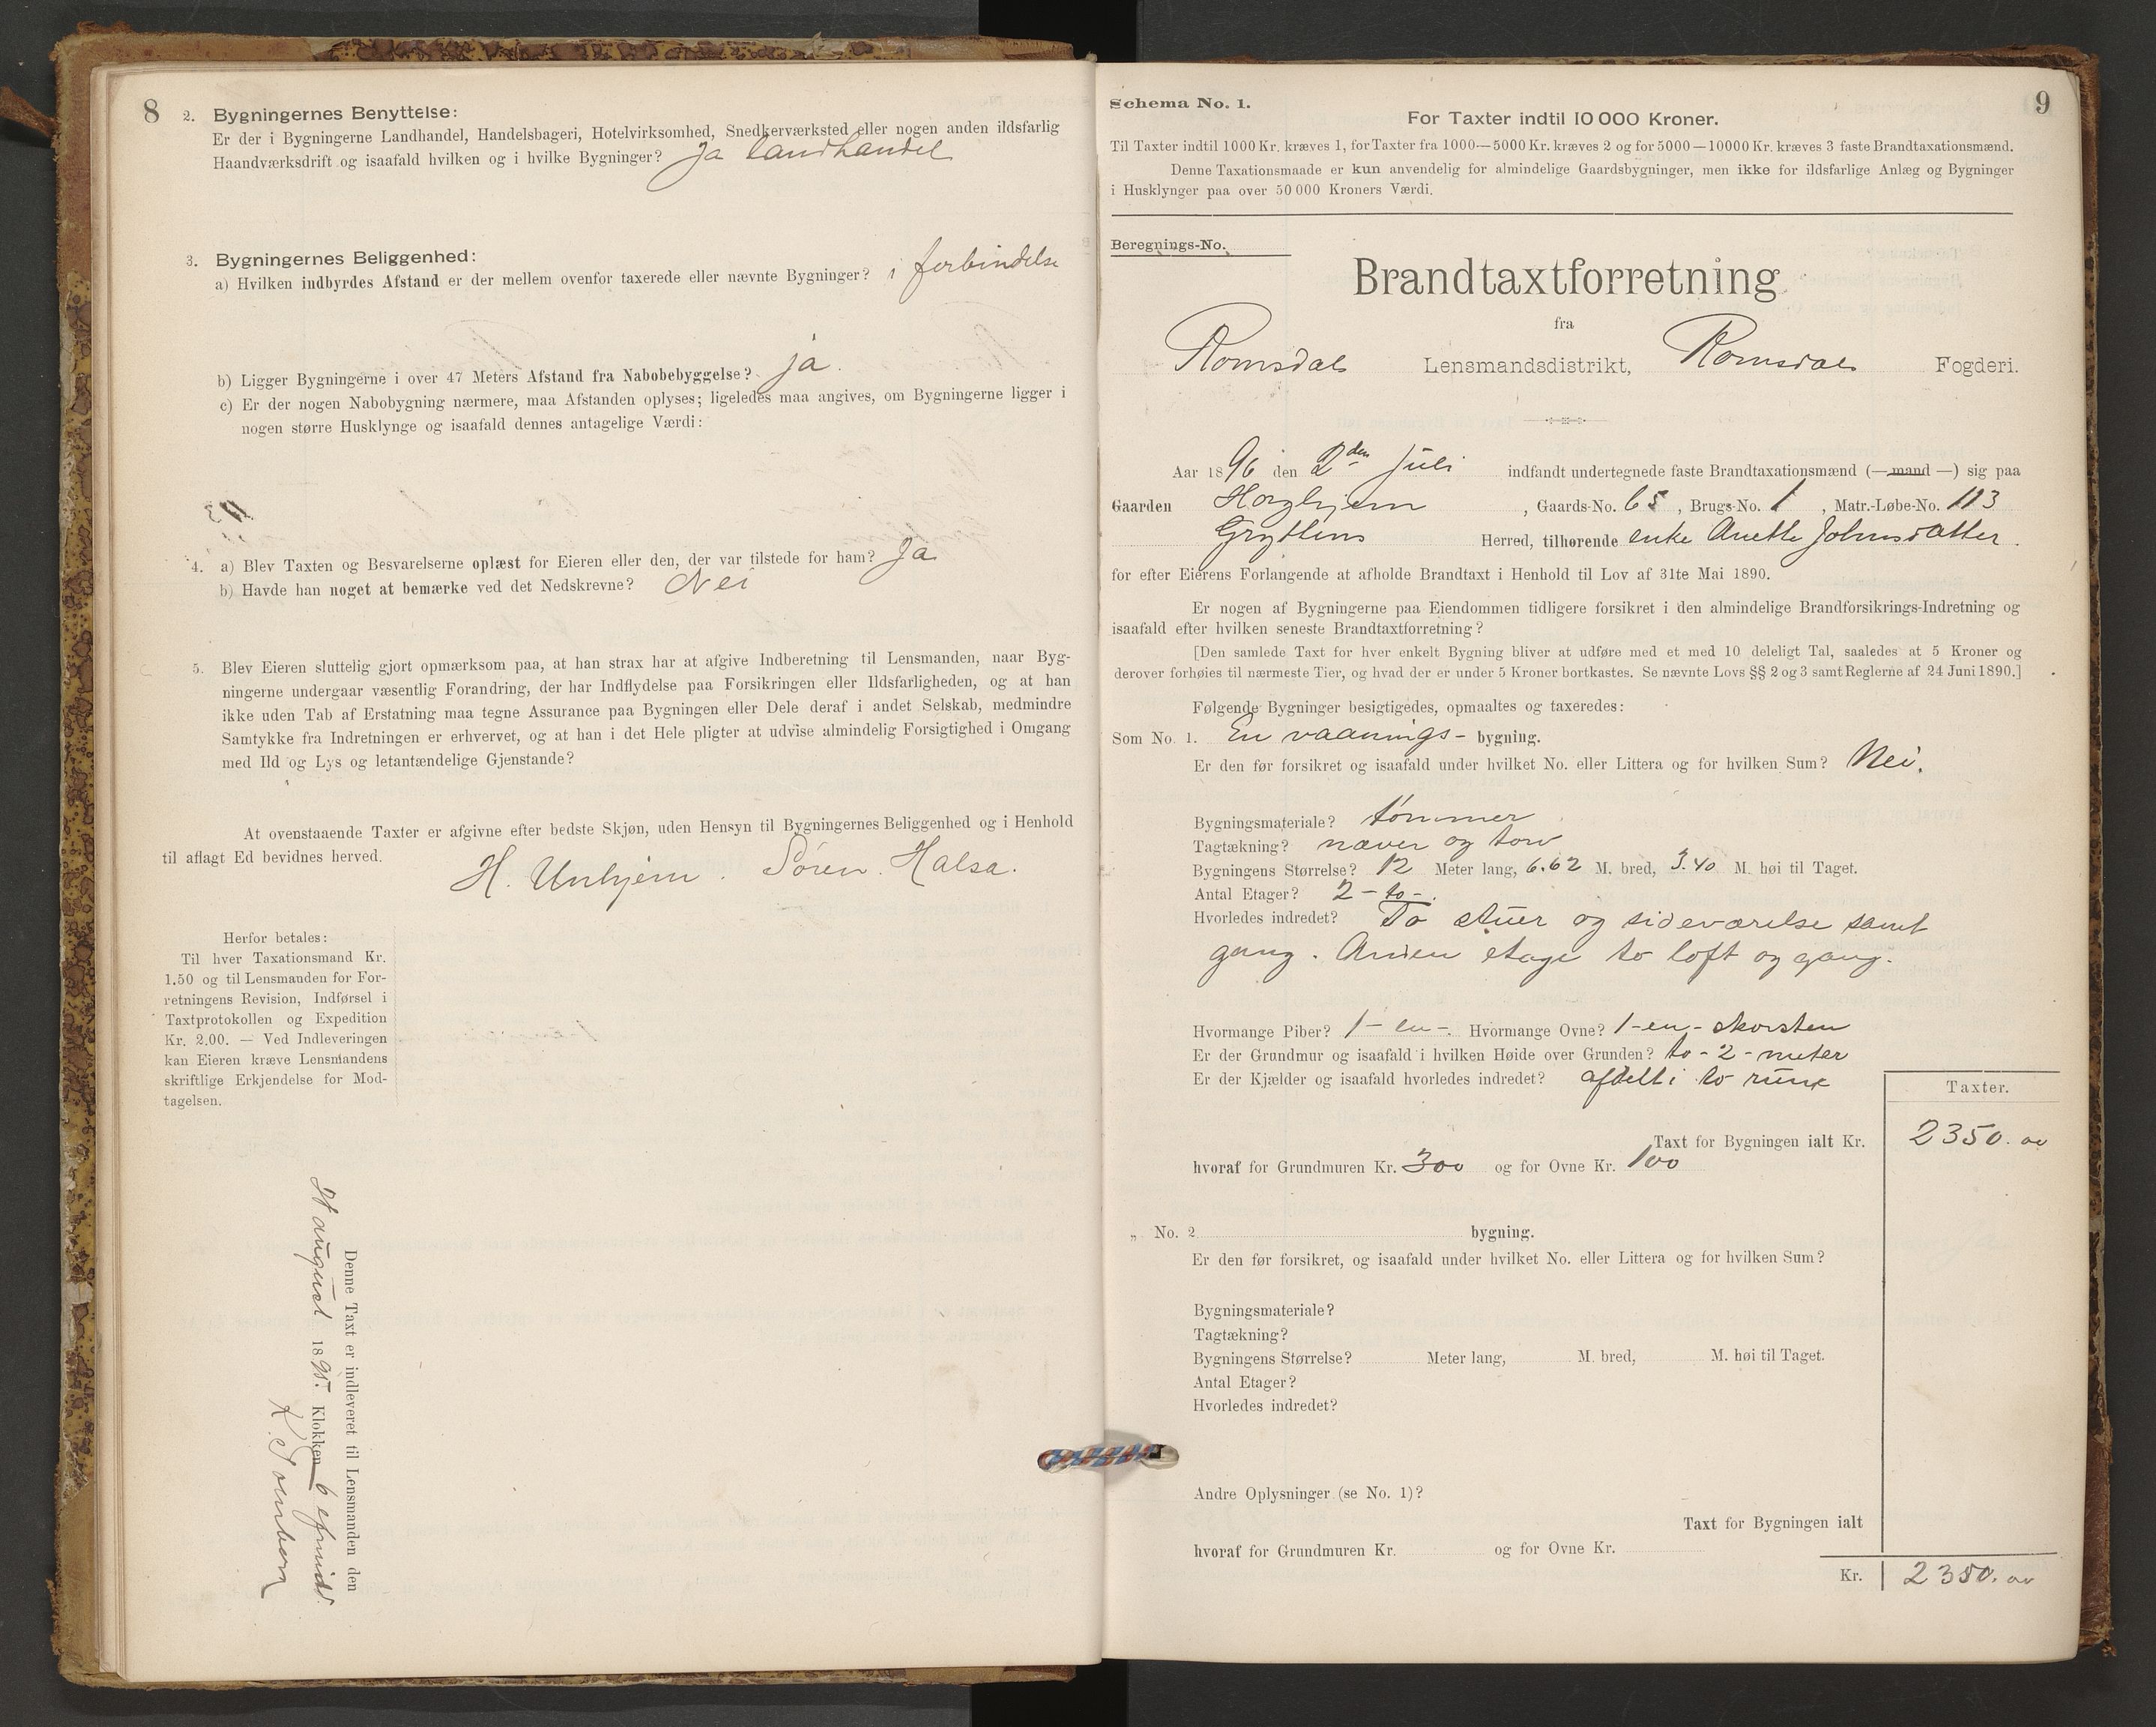 8
2. Bygningernes Benyttelse:
Er der i Bygningerne Landhandel, Handelsbageri, Hotelvirksomhed, Snedkerværksted eller nogen anden ildsfarlig
Haandværksdrift og isaafald hvilken og i hvilke Bygninger? Ja landhandel
3. Bygningernes Beliggenhed:
a) Hvilken indbyrdes Afstand er der mellem ovenfor taxerede eller nævnte Bygninger? i forbindelse
b) Ligger Bygningerne i over 47 Meters Afstand fra Nabobebyggelse? ja.
c) Er der nogen Nabobygning nærmere, maa Afstanden oplyses; ligeledes maa angives, om Bygningerne ligger i
nogen større Husklynge og isaafald dennes antagelige Værdi:
4. a) Blev Taxten og Besvarelserne oplæst for Eieren eller den, der var tilstede for ham? Ja
b) Havde han noget at bemærke ved det Nedskrevne? Nei
5. Blev Eieren sluttelig gjort opmærksom paa, at han strax har at afgive Indberetning til Lensmanden, naar Byg-
ningerne undergaar væsentlig Forandring, der har Indflydelse paa Forsikringen eller Ildsfarligheden, og at han
ikke uden Tab af Erstatning maa tegne Assurance paa Bygningen eller Dele deraf i andet Selskab, medmindre
Samtykke fra Indretningen er erhvervet, og at han i det Hele pligter at udvise almindelig Forsigtighed i Omgang
med Ild og Lys og letantændelige Gjenstande?
At ovenstaaende Taxter er afgivne efter bedste Skjøn, uden Hensyn til Bygningernes Beliggenhed og i Henhold
til aflagt Ed bevidnes herved.
H. Unhjem. Sören. Halsa.
Herfor betales:
Til hver Taxationsmand Kr.
1.50 og til Lensmanden for For-
retningens Revision, Indførsel i
Taxtprotokollen og Expedition
Kr. 2.00. — Ved Indleveringen
kan Eieren kræve Lensmandens
skriftlige Erkjendelse for Mod-
tagelsen.
Denne Taxt er indleveret til Lensmanden den
august 1895. Klokken 6 efmid.
9
Schema No. 1.
For Taxter indtil 10 000 Kroner.
Til Taxter indtil 1000 Kr. kræves 1, for Taxter fra 1000—5000 Kr. kræves 2 og for 5000—10000 Kr. kræves 3 faste Brandtaxationsmænd.
Denne Taxationsmaade er kun anvendelig for almindelige Gaardsbygninger, men ikke for ildsfarlige Anlæg og Bygninger
i Husklynger paa over 50 000 Kroners Værdi.
Beregnings-No.
Brandtaxtforretning
fra
Romsdals Lensmandsdistrikt, Romsdals Fogderi.
Aar 1896 den 2den Juli indfandt undertegnede faste Brandtaxationsmænd (— mand —) sig paa
Gaarden Horghjem, Gaards-No. 65, Brugs-No. 1, Matr.-Løbe-No. 113
Gryttens Herred, tilhørende enke Anette Johnsdatter.
for efter Eierens Forlangende at afholde Brandtaxt i Henhold til Lov af 31te Mai 1890.
Er nogen af Bygningerne paa Eiendommen tidligere forsikret i den almindelige Brandforsikrings-Indretning og
isaafald efter hvilken seneste Brandtaxtforretning?
[Den samlede Taxt for hver enkelt Bygning bliver at udføre med et med 10 deleligt Tal, saaledes at 5 Kroner og
derover forhøies til nærmeste Tier, og hvad der er under 5 Kroner bortkastes. Se nævnte Lovs §§ 2 og 3 samt Reglerne af 24 Juni 1890.]
Følgende Bygninger besigtigedes, opmaaltes og taxeredes:
Som No. 1. En vaanings- bygning.
Er den før forsikret og isaafald under hvilket No. eller Littera og for hvilken Sum? Nei.
Bygningsmateriale? tömmer
Tagtækning? næver og torv
Bygningens Størrelse? 12 Meter lang, 6.62 M. bred, 3.40 M. høi til Taget.
Antal Etager? 2 - to -.
Hvorledes indredet? To stuer og sideværelse samt
gang. Anden etage to loft og gang.
Hvormange Piber? 1 - en -. Hvormange Ovne? 1 - en - skorsten
Er der Grundmur og isaafald i hvilken Høide over Grunden? to - 2 - meter
Er der Kjælder og isaafald hvorledes indredet? afdelt i to rum
Taxter.
Taxt for Bygningen ialt Kr. 2350. 00
hvoraf for Grundmuren Kr. 300 og for Ovne Kr. 100
„ No. 2 bygning.
Er den før forsikret, og isaafald under hvilket No. eller Littera og for hvilken Sum?
Bygningsmateriale?
Tagtækning?
Bygningens Størrelse? Meter lang, M. bred, M. høi til Taget.
Antal Etager?
Hvorledes indredet?
Andre Oplysninger (se No. 1)?
Taxt for Bygningen ialt
hvoraf for Grundmuren Kr. og for Ovne Kr.
Kr. 2350. 00